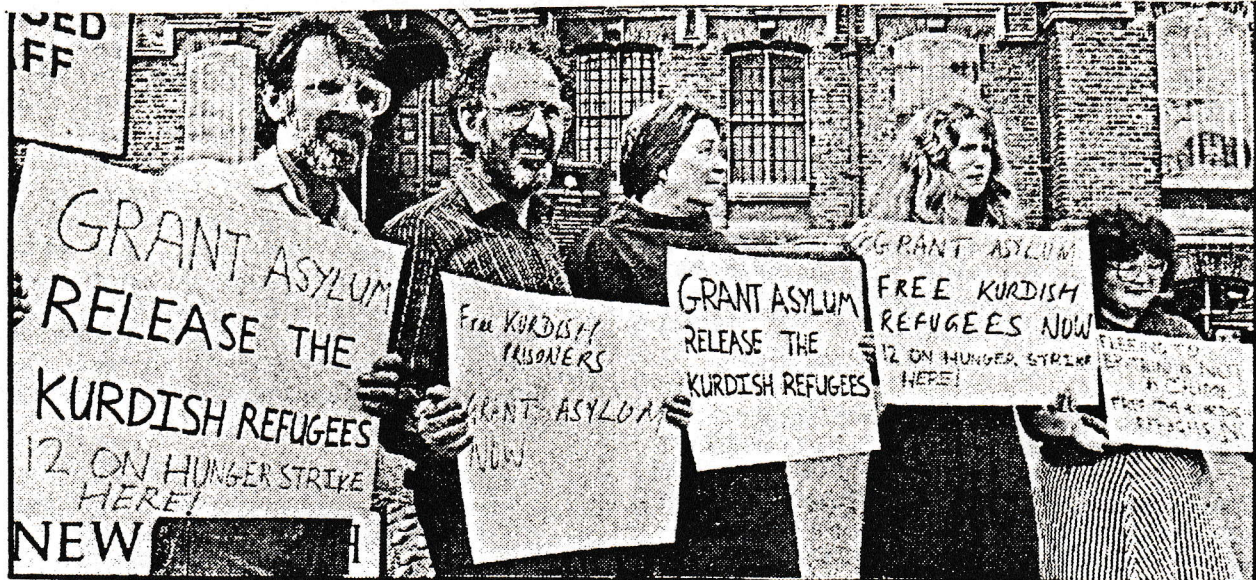 FF
GRANT ASYLUM
RELEASE THE
KURDISH REFUGEES
12 ON HUNGER STRIKE
HERE!
NEW
Free KURDISH
PRISONERS
GRANT ASYLUM
NOW
GRANT ASYLUM
RELEASE THE
KURDISH REFUGEES
GRANT ASYLUM
FREE KURDISH
REFUGEES NOW
12 ON HUNGER STRIKE
HERE!
FLEEING TO
BRITAIN IS NOT
A CRIME